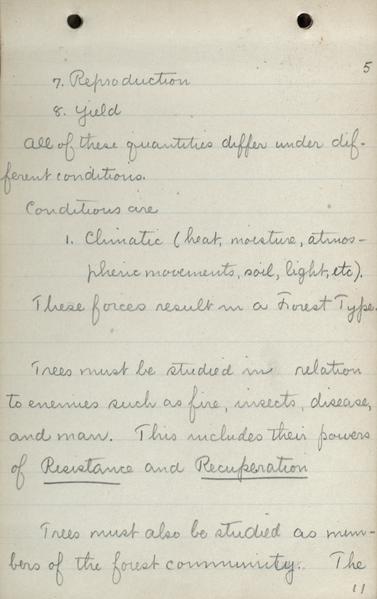 5
7. Reproduction
8. Yield
All of these quantities differ under dif-
ferent conditions.
Conditions are
1. Climatic (heat, moisture, atmos-
pheric movements, soil, light, etc).
These forces result in a Forest Type.
Trees must be studied in relation
to enemies such as fire, insects, disease,
and man. This includes their powers
of Resistance and Recuperation
Trees must also be studied as mem-
bers of the forest community. The
11